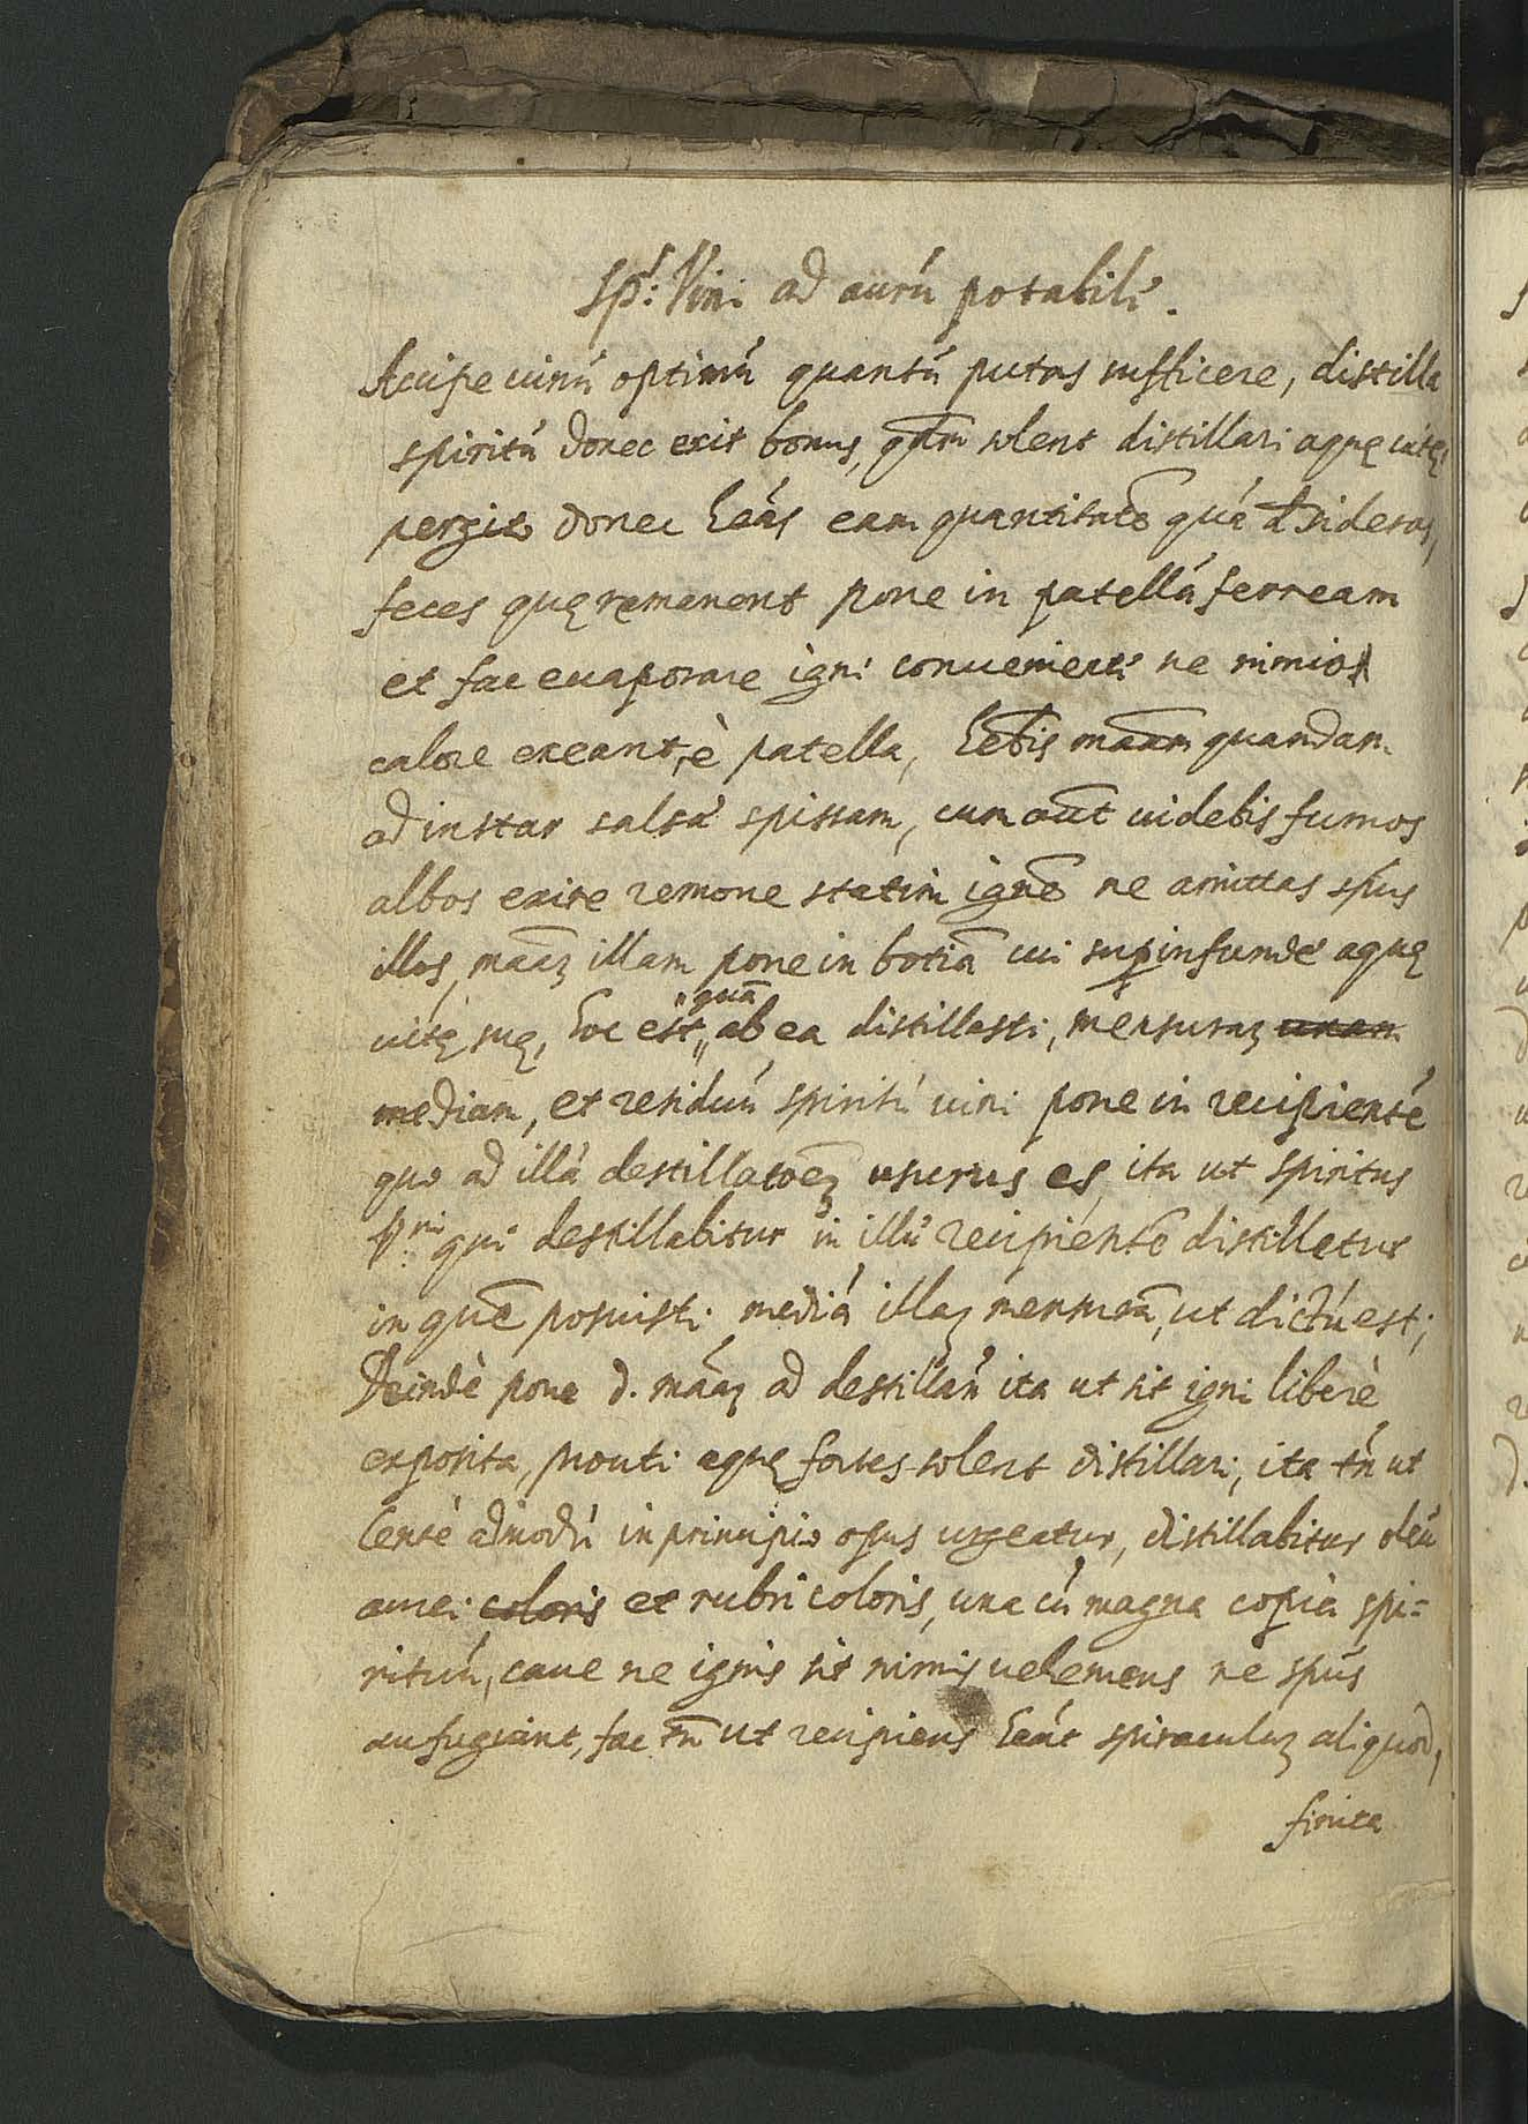 Sp.s Vini ad aurú potabilé.
Accipe uinú optimú quantú putas sufficere, distilla
spiritú donec exit bonus, q̃m solent distillari aquę uitę,
pergito donec heás eam quantitatẽ quá desideras,
feces quę remanent pone in patellá ferream
et fac euaporare igni conuenienti ne nimio
calore exeant è patella, hẽbis mãam quandam
ad instar salsæ spissam, cum aũt uidebis fumos
albos exire remoue statim ignẽ ne amittas spús
illos, mãaz illam pone in botiã cui superinfunde aquę
uitę suę, hoc est, quã ab ea distillasti, mensuraz unam
mediam, et residuú spiritú uini pone in recipienté
quo ad illá destillatoẽz usurus es, ita ut spiritus
qui destillabitur in illú recipientẽ distilletur
in quẽ posuisti mediá illaz mensurã, ut dictú est;
Deindè pone d. mãaz ad destillañ ita ut sit igni liberè
exposita, prouti aquę fortes solent distillari, ita tñ ut
lentè admodú in principio opus urgeatur, distillabitur oleú
aurei coloris et rubri coloris, una cú magna copia spi=
rituú, caue ne ignis sit nimis uehemens ne spús
aufugiant, fac tñ ut recipiens heát spiraculuz aliquod,
finita